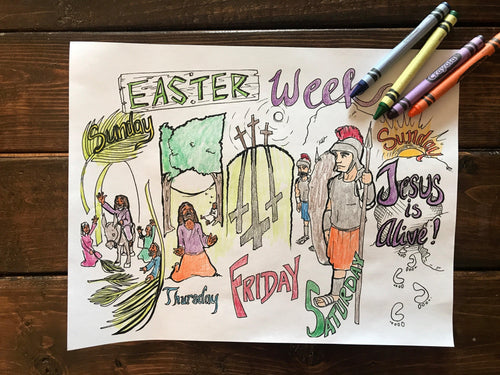 EASTER Week
Sunday
Thursday
FRIDAY
SATURDAY
Sunday
Jesus
is
Alive!
Crayola